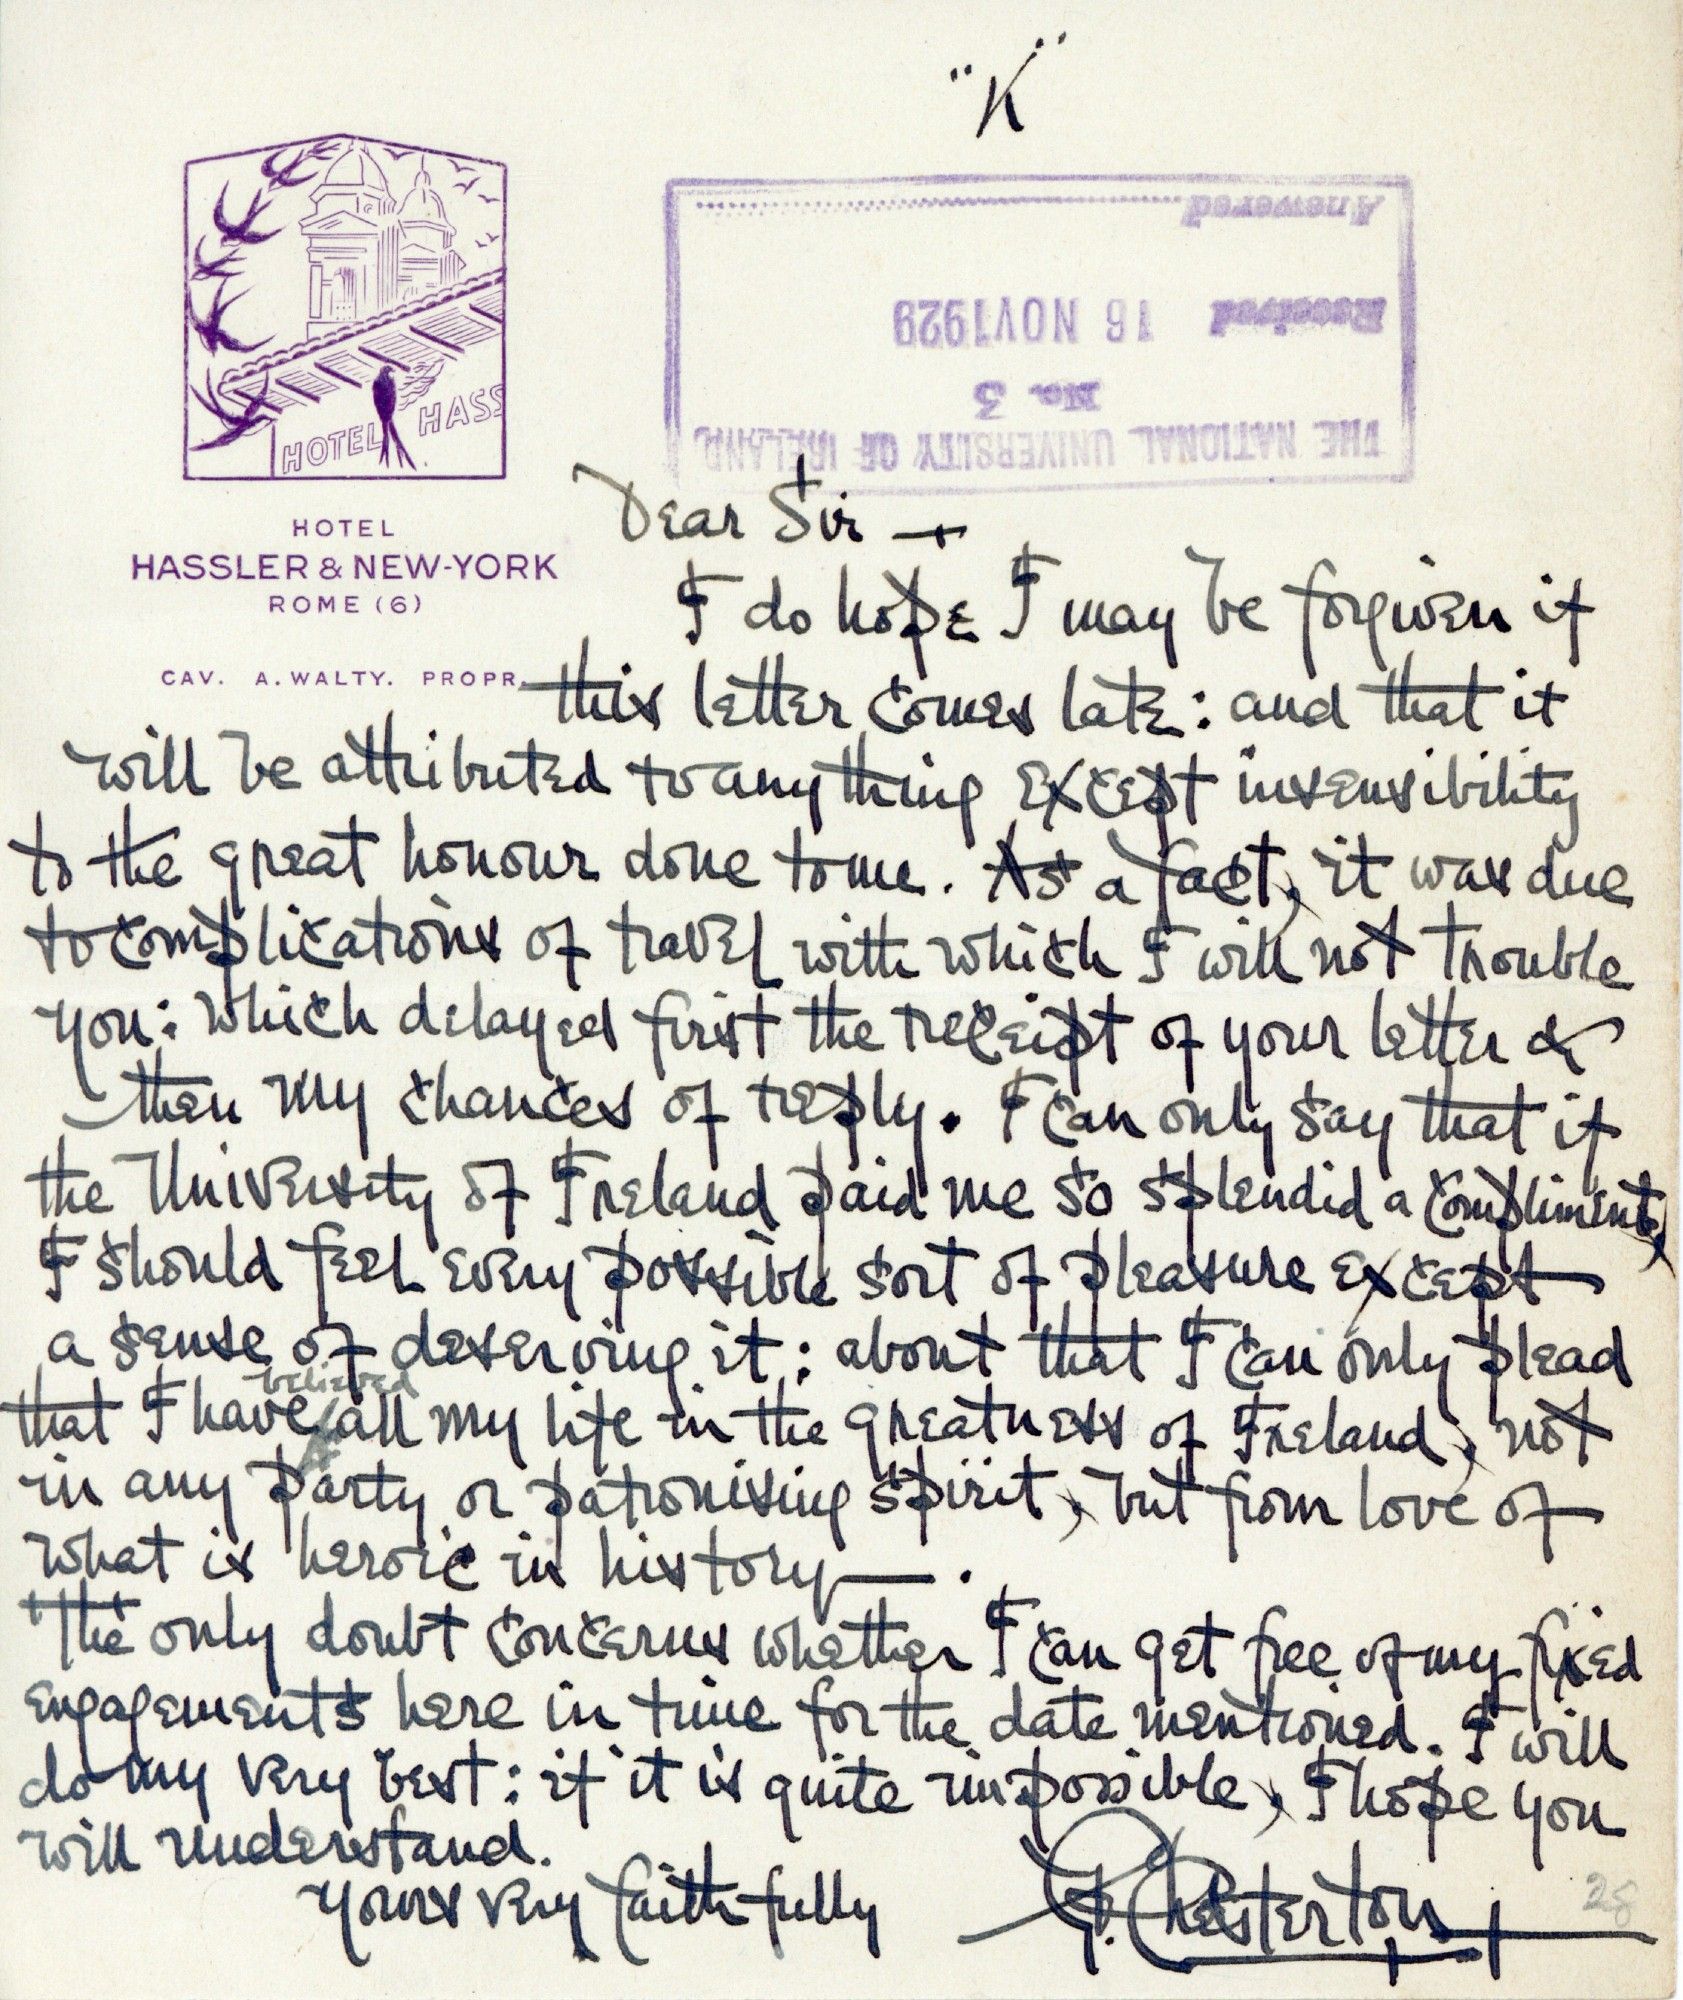 "K"
Answered
Received 16 NOV 1929
No. 3
THE NATIONAL UNIVERSITY OF IRELAND
HOTEL HASS
HOTEL
HASSLER & NEW-YORK
ROME (6)
CAV. A. WALTY. PROPR.
Dear Sir —
I do hope I may be forgiven if
this letter comes late: and that it
will be attributed to anything except insensibility
to the great honour done to me. As a fact, it was due
to complications of travel with which I will not trouble
you: which delayed first the receipt of your letter &
then my chances of reply. I can only say that if
the University of Ireland paid me so splendid a compliment,
I should feel every possible sort of pleasure except
a sense of deserving it: about that I can only plead
believed
that I have all my life in the greatness of Ireland, not
in any party or patronising spirit, but from love of
what is heroic in history—.
The only doubt concerns whether I can get free of my fixed
engagements here in time for the date mentioned. I will
do my very best: if it is quite impossible, I hope you
will understand.
Yours very faithfully G.K. Chesterton
28